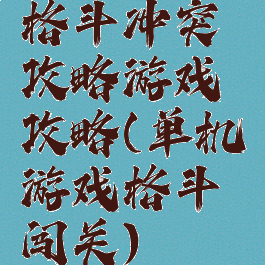 格斗冲突
攻略游戏
攻略(单机
游戏格斗
闯关)